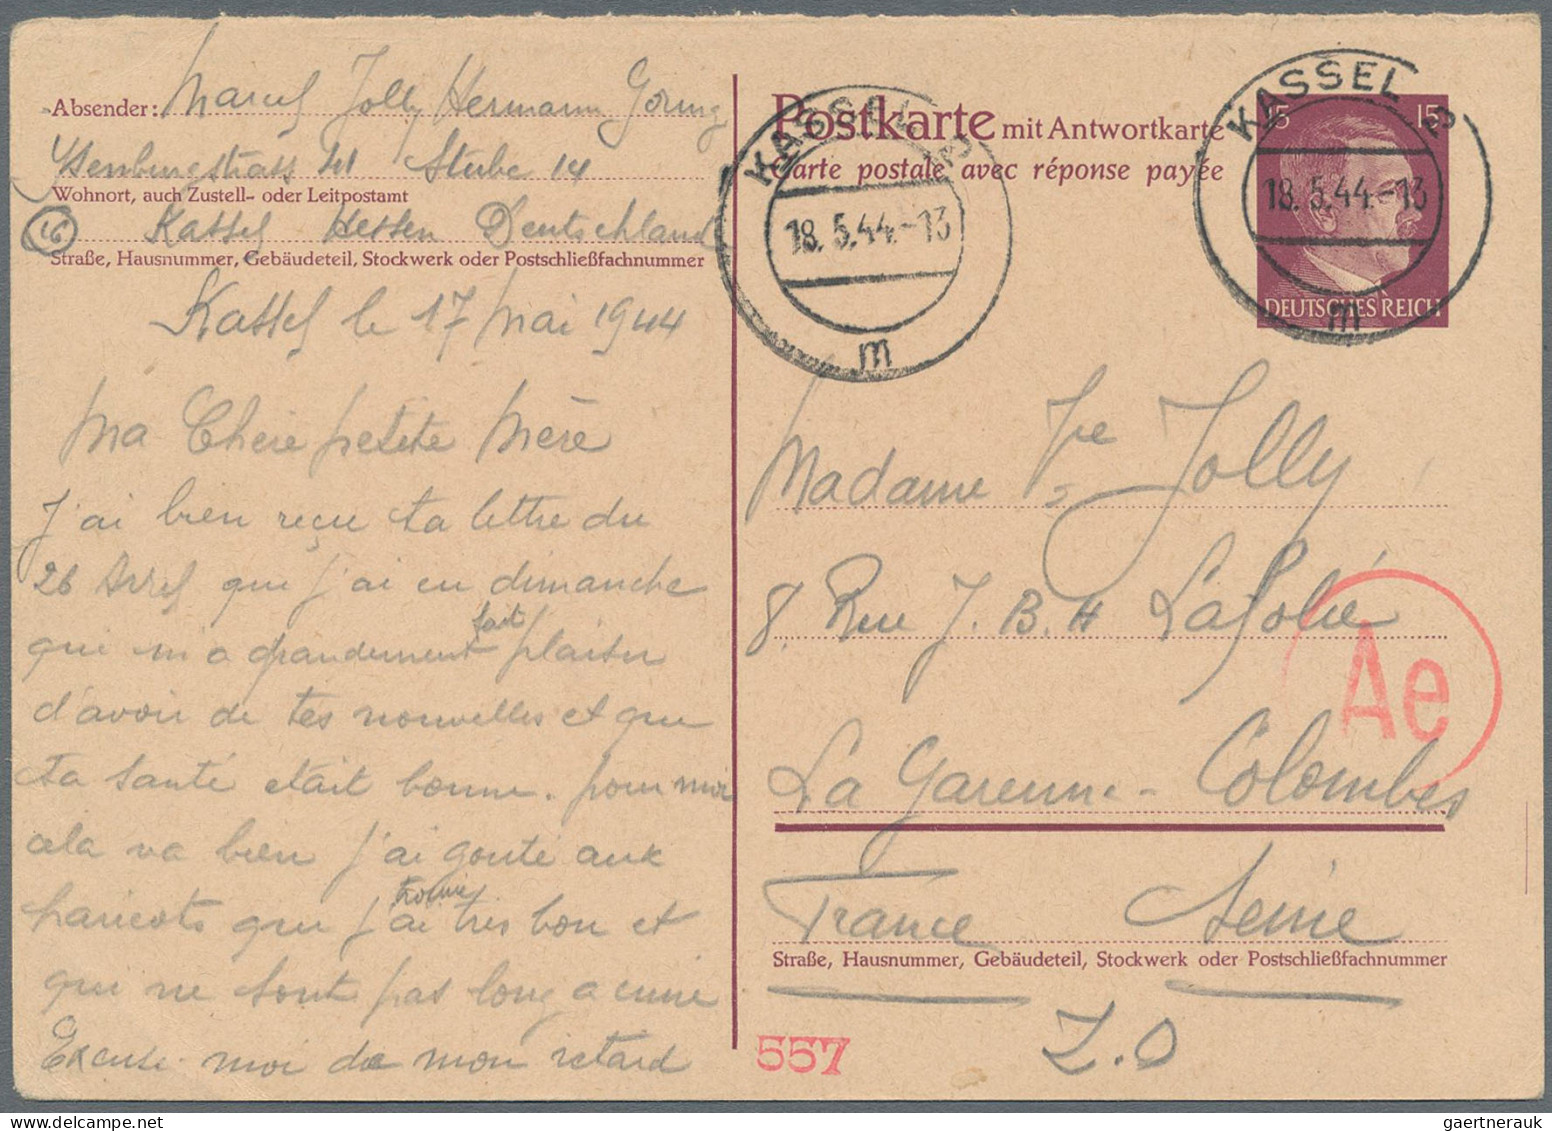 Absender: Marcel Jolly Hermann Göring
Wohnort, auch Zustell- oder Leitpostamt
41 Stube 14
16 Kassel Hessen Deutschland
Straße, Hausnummer, Gebäudeteil, Stockwerk oder Postschließfachnummer
Kassel le 17 Mai 1944
Ma Chere petite Mère
J'ai bien reçu ta lettre du
26 Avril que j'ai eu dimanche
qui m'a grandement fait plaisir
d'avoir de tes nouvelles et que
ta santé etait bonne. pour moi
cela va bien j'ai gouté aux
haricots que j'ai trouvé tres bon et
qui ne sont pas long a cuire
Excuse moi de mon retard
Postkarte mit Antwortkarte
Carte postale avec réponse payée
KASSEL
18.5.44.-13
m
KASSEL
18.5.44.-13
m
15 15
DEUTSCHES REICH
Madame Jolly
8 Rue J. B. H
La Garenne-Colombes
France Seine
Straße, Hausnummer, Gebäudeteil, Stockwerk oder Postschließfachnummer
Z.O
Ae
557
gaertnerauk @ delcampe.net